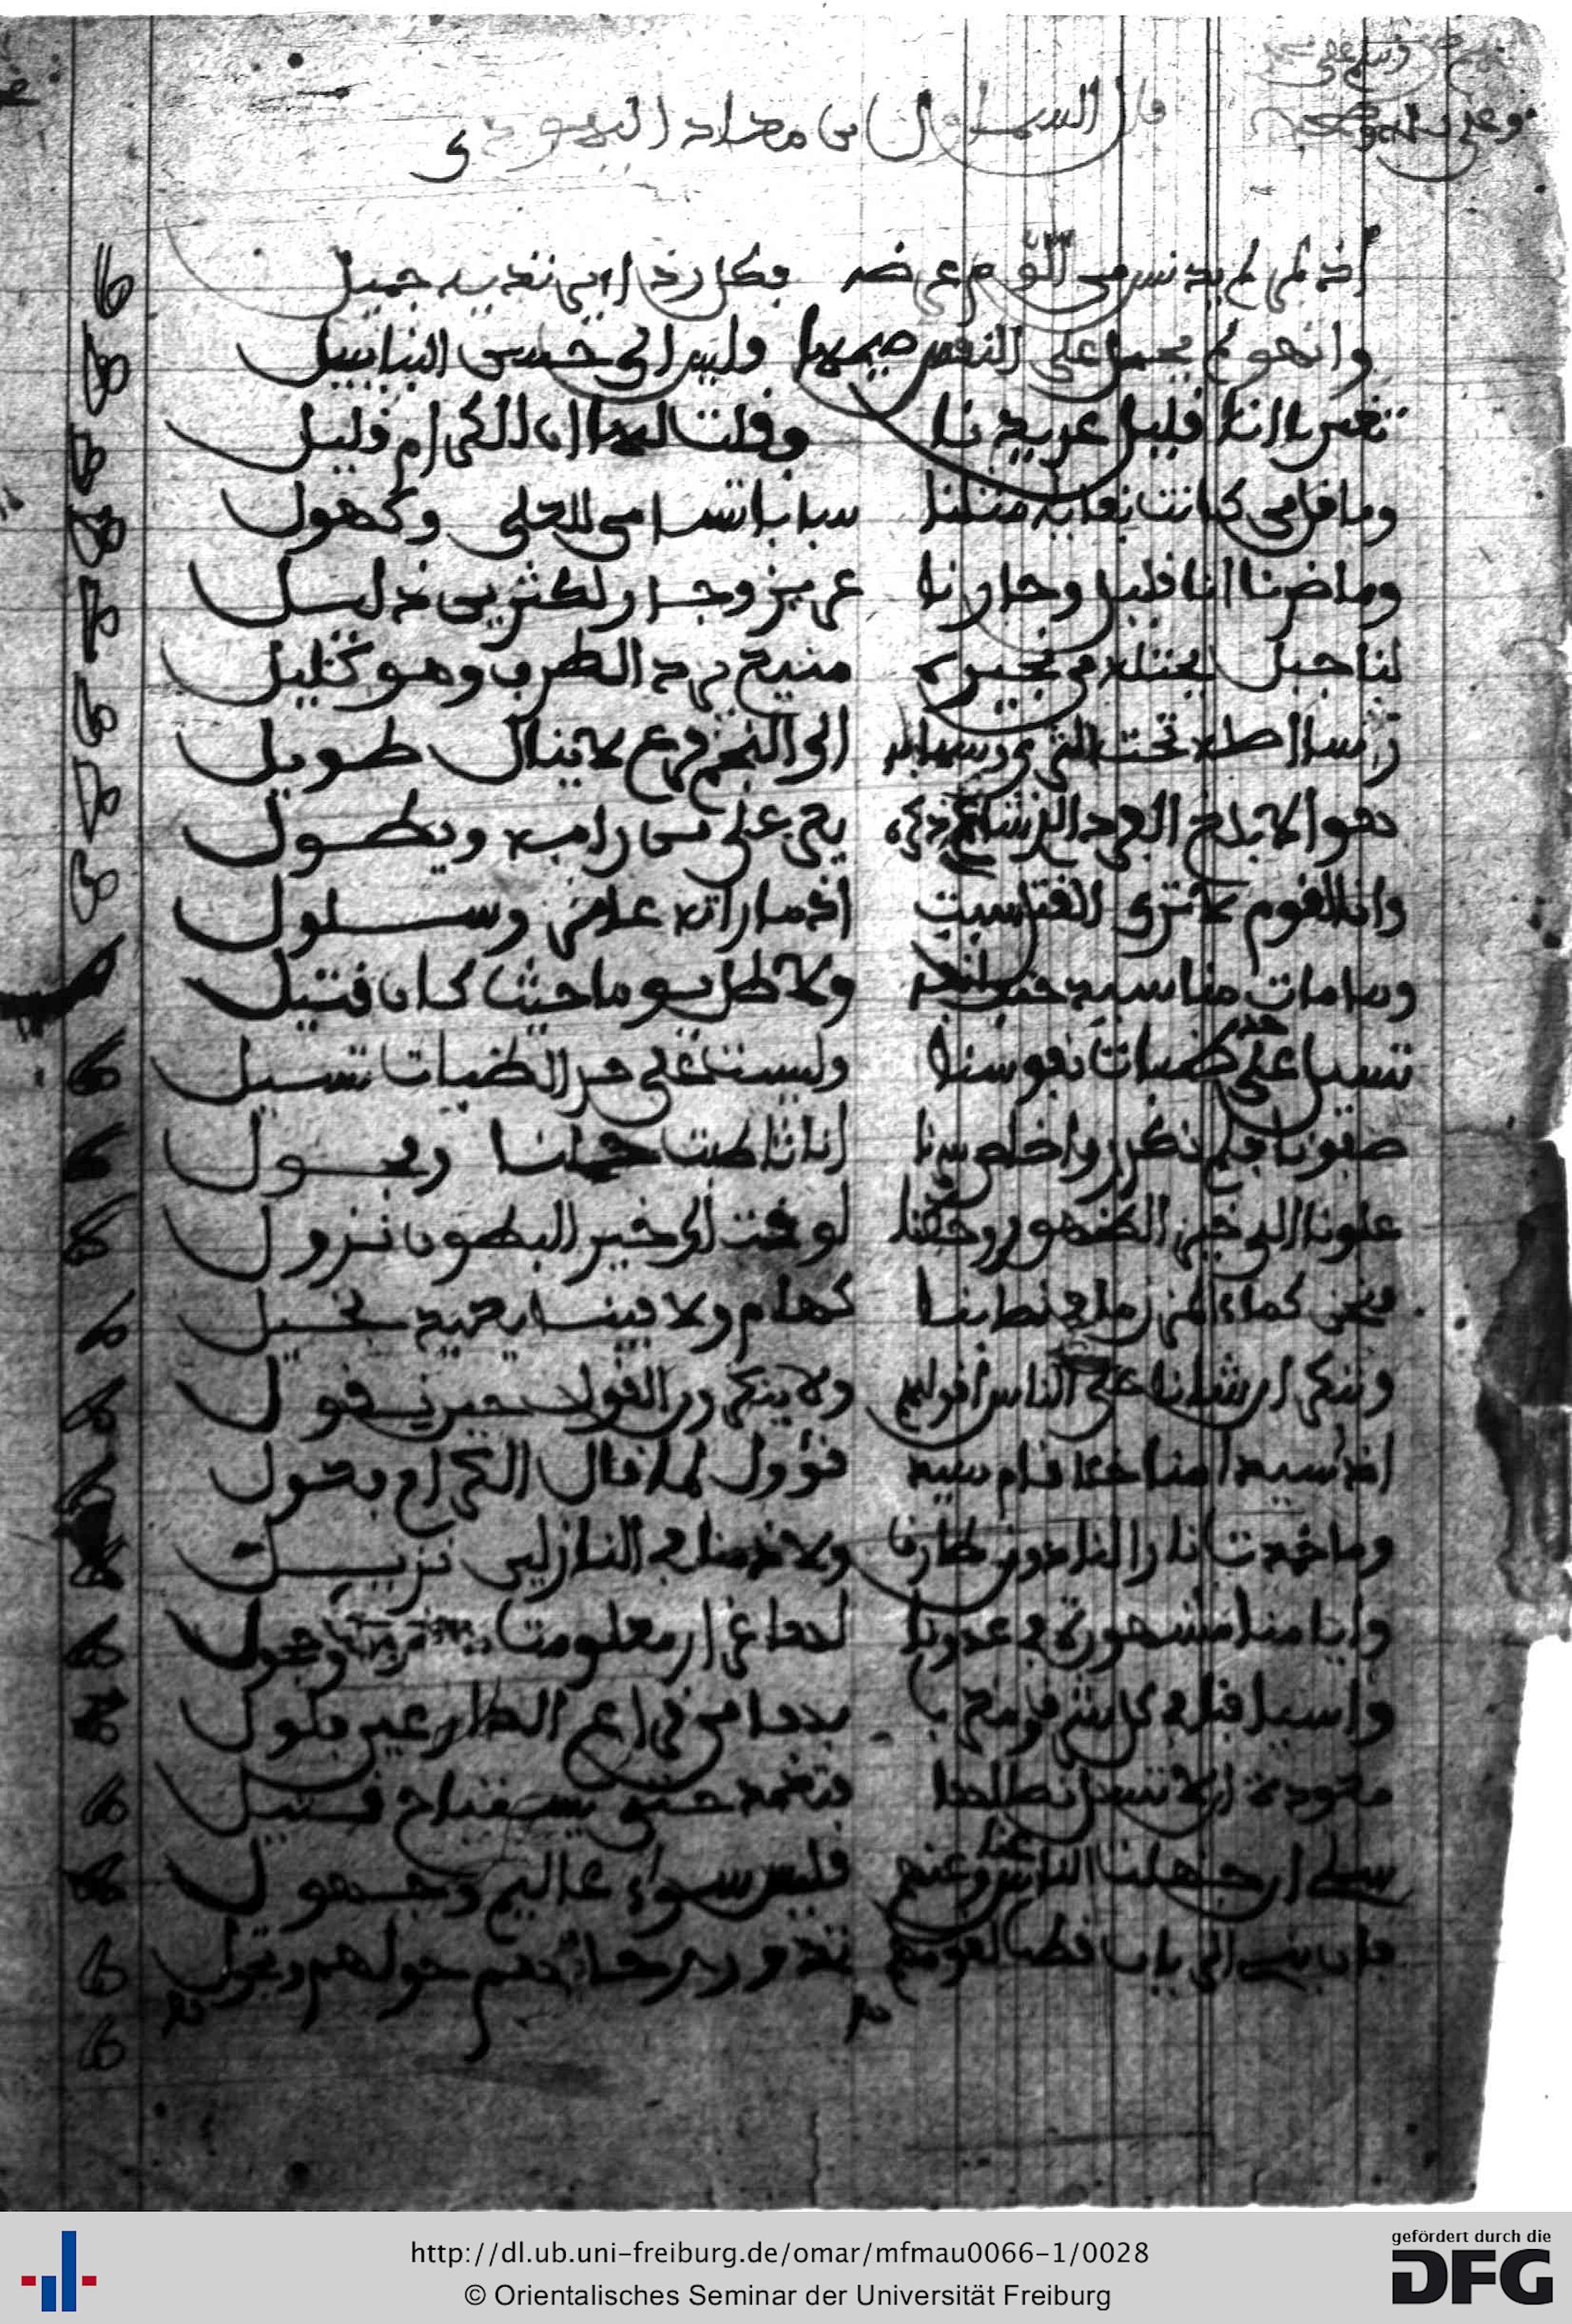 وسلم على
وعلى ءاله وصحبه
قال السموال بن عداد اليهودي
إذ المرء لم يدنس من اللؤم عرضه فكل رداء يرتديه جميل
وان هو لم يحمل على النفس ضيمها وليس الى حسن الثنا سبيل
تعيرنا انا قليل عديدنا وقلت لها ان الكرام قليل
وما قل من كانت بقاياه مثلنا شبابا تسامى للعلى وكهول
وما ضرنا انا قليل وجارنا عزيز وجار الاكثرين ذليل
لنا جبل يحتله من نجيره منيع يرد الطرف وهو كليل
رسا اصله تحت الثرى وسما به الى النجم فرع لا ينال طويل
هو الابلق الفرد الذي شاع ذكره يعز على من رامه ويطول
وانا لقوم لا نرى القتل سبت اذ ما راته عامر وسلول
وما مات منا سيد حتف انفه ولا طل يوما حيث كان قتيل
تسيل على حد الظبات نفوسنا وليست على غير الظبات تسيل
صفونا فلم نكدر واخلص سرنا اناث اطابت حملنا وفحول
علونا الى خير الظهور وحطنا لوقت الى خير البطون نزول
فنحن كماء المزن ما في نصابنا كهام ولا فينا يعد بخيل
وننكر ان شئنا على الناس قولهم ولا ينكرون القول حين نقول
اذا سيد منا خلا قام سيد قؤول لما قال الكرام فعول
وما خمدت نار لنا دون طارق ولا ذمنا في النازلين نزيل
وايامنا مشهورة في عدونا لها غرر معلومت وحجول
واسيافنا في كل شرق ومغرب بها من قراع الدارعين فلول
معودة ان لا تسل نصالها فتغمد حتى يستباح قتيل
سلي ان جهلت الناس عنا وعنهم فليس سواء عالم وجهول
فان بني الريان قطب لقومهم تدور رحاهم حولهم وتجول
http://dl.ub.uni-freiburg.de/omar/mfmau0066-1/0028
© Orientalisches Seminar der Universität Freiburg
gefördert durch die
DFG